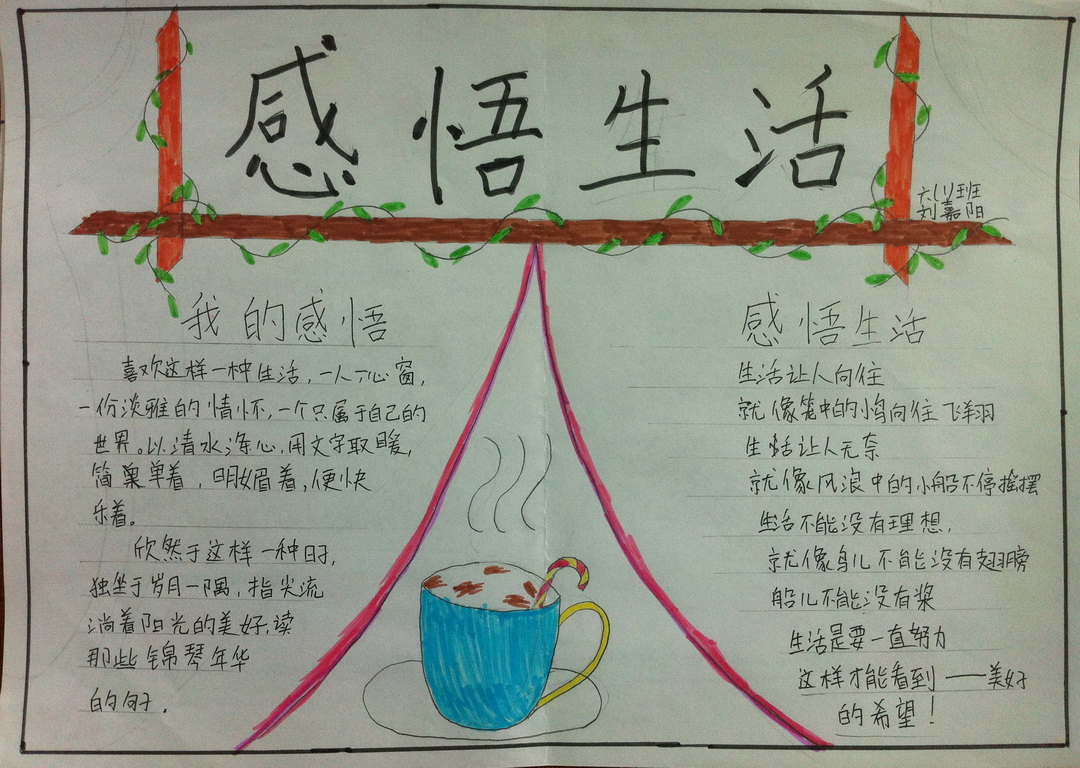 感悟生活
六(1)班
刘嘉阳
我的感悟
喜欢这样一种生活,一人一心窗,
一份淡雅的情怀,一个只属于自己的
世界。以清水洗心,用文字取暖,
简单着,明媚着,便快
乐着。
欣然于这样一种日子,
独坐于岁月一隅,指尖流
淌着阳光的美好,读
那些锦琴年华
的句子.
感悟生活
生活让人向往
就像笼中的小鸟向往飞翔
生活让人无奈
就像风浪中的小船不停摇摆
生活不能没有理想.
就像鸟儿不能没有翅膀
船儿不能没有桨
生活是要一直努力
这样才能看到——美好
的希望!